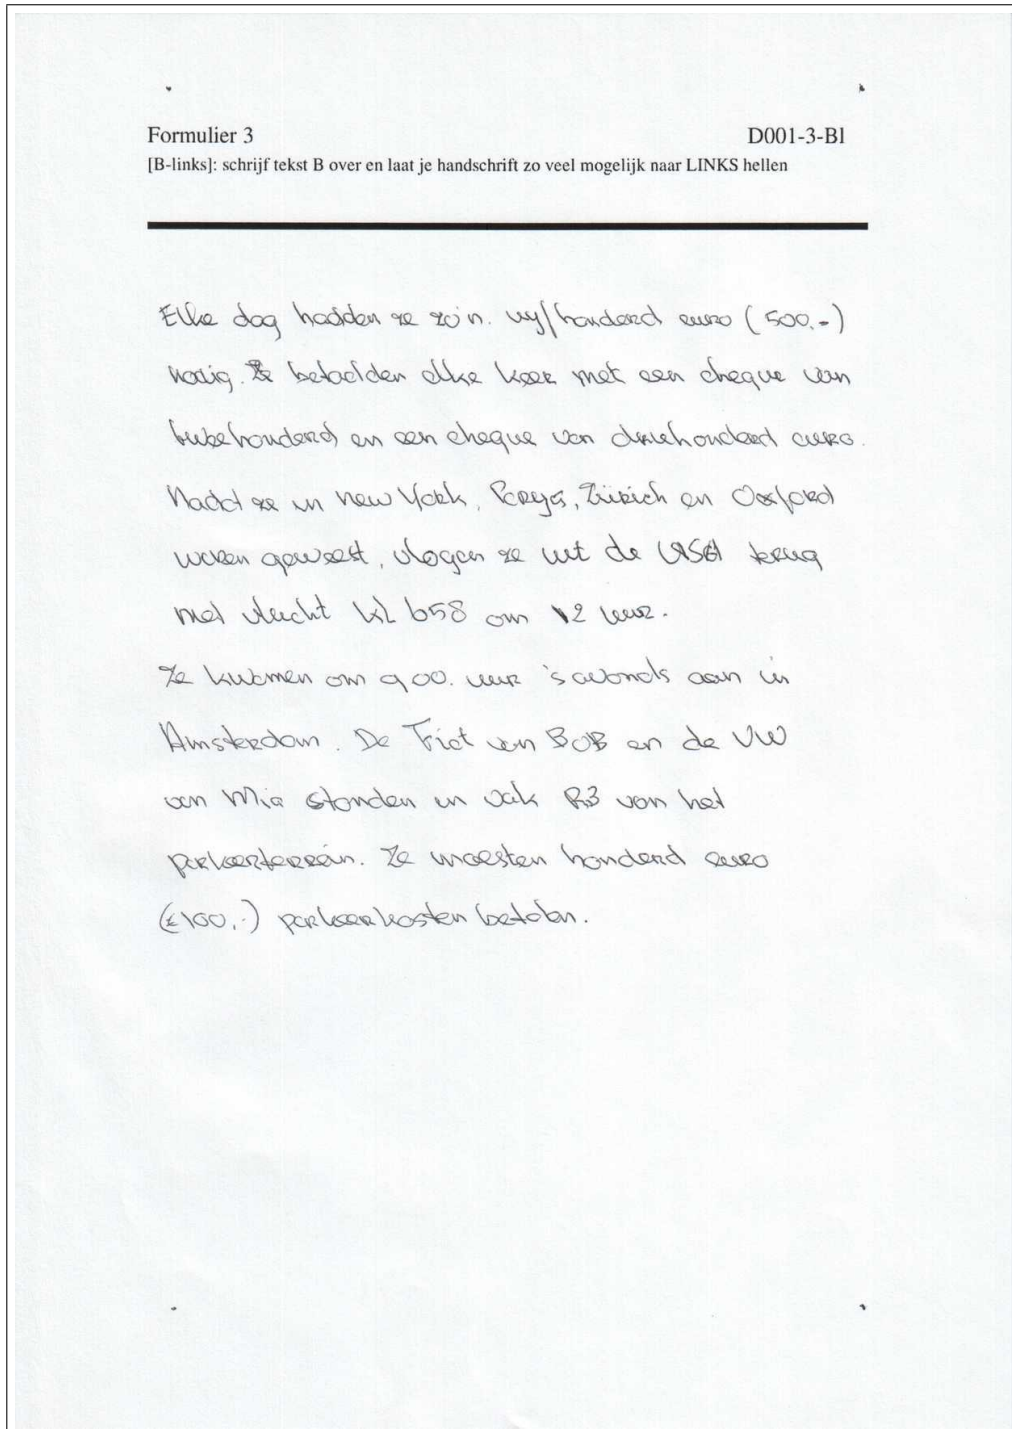 Formulier 3 D001-3-Bl
[B-links]: schrijf tekst B over en laat je handschrift zo veel mogelijk naar LINKS hellen
Elke dag hadden ze zo'n. vijfhonderd euro (500,-)
nodig. Ze betaalden elke keer met een cheque van
tweehonderd en een cheque van driehonderd euro.
Nadat ze in new York, Parijs, Zürich en Oxford
waren geweest, vlogen ze uit de USA terug
met vlucht KL 658 om 12 uur.
Ze kwamen om 9 00. uur 's avonds aan in
Amsterdam. De Fiat van BOB en de VW
van Mia stonden in vak R3 van het
parkeerterrein. Ze moesten honderd euro
(€100,-) parkeerkosten betalen.